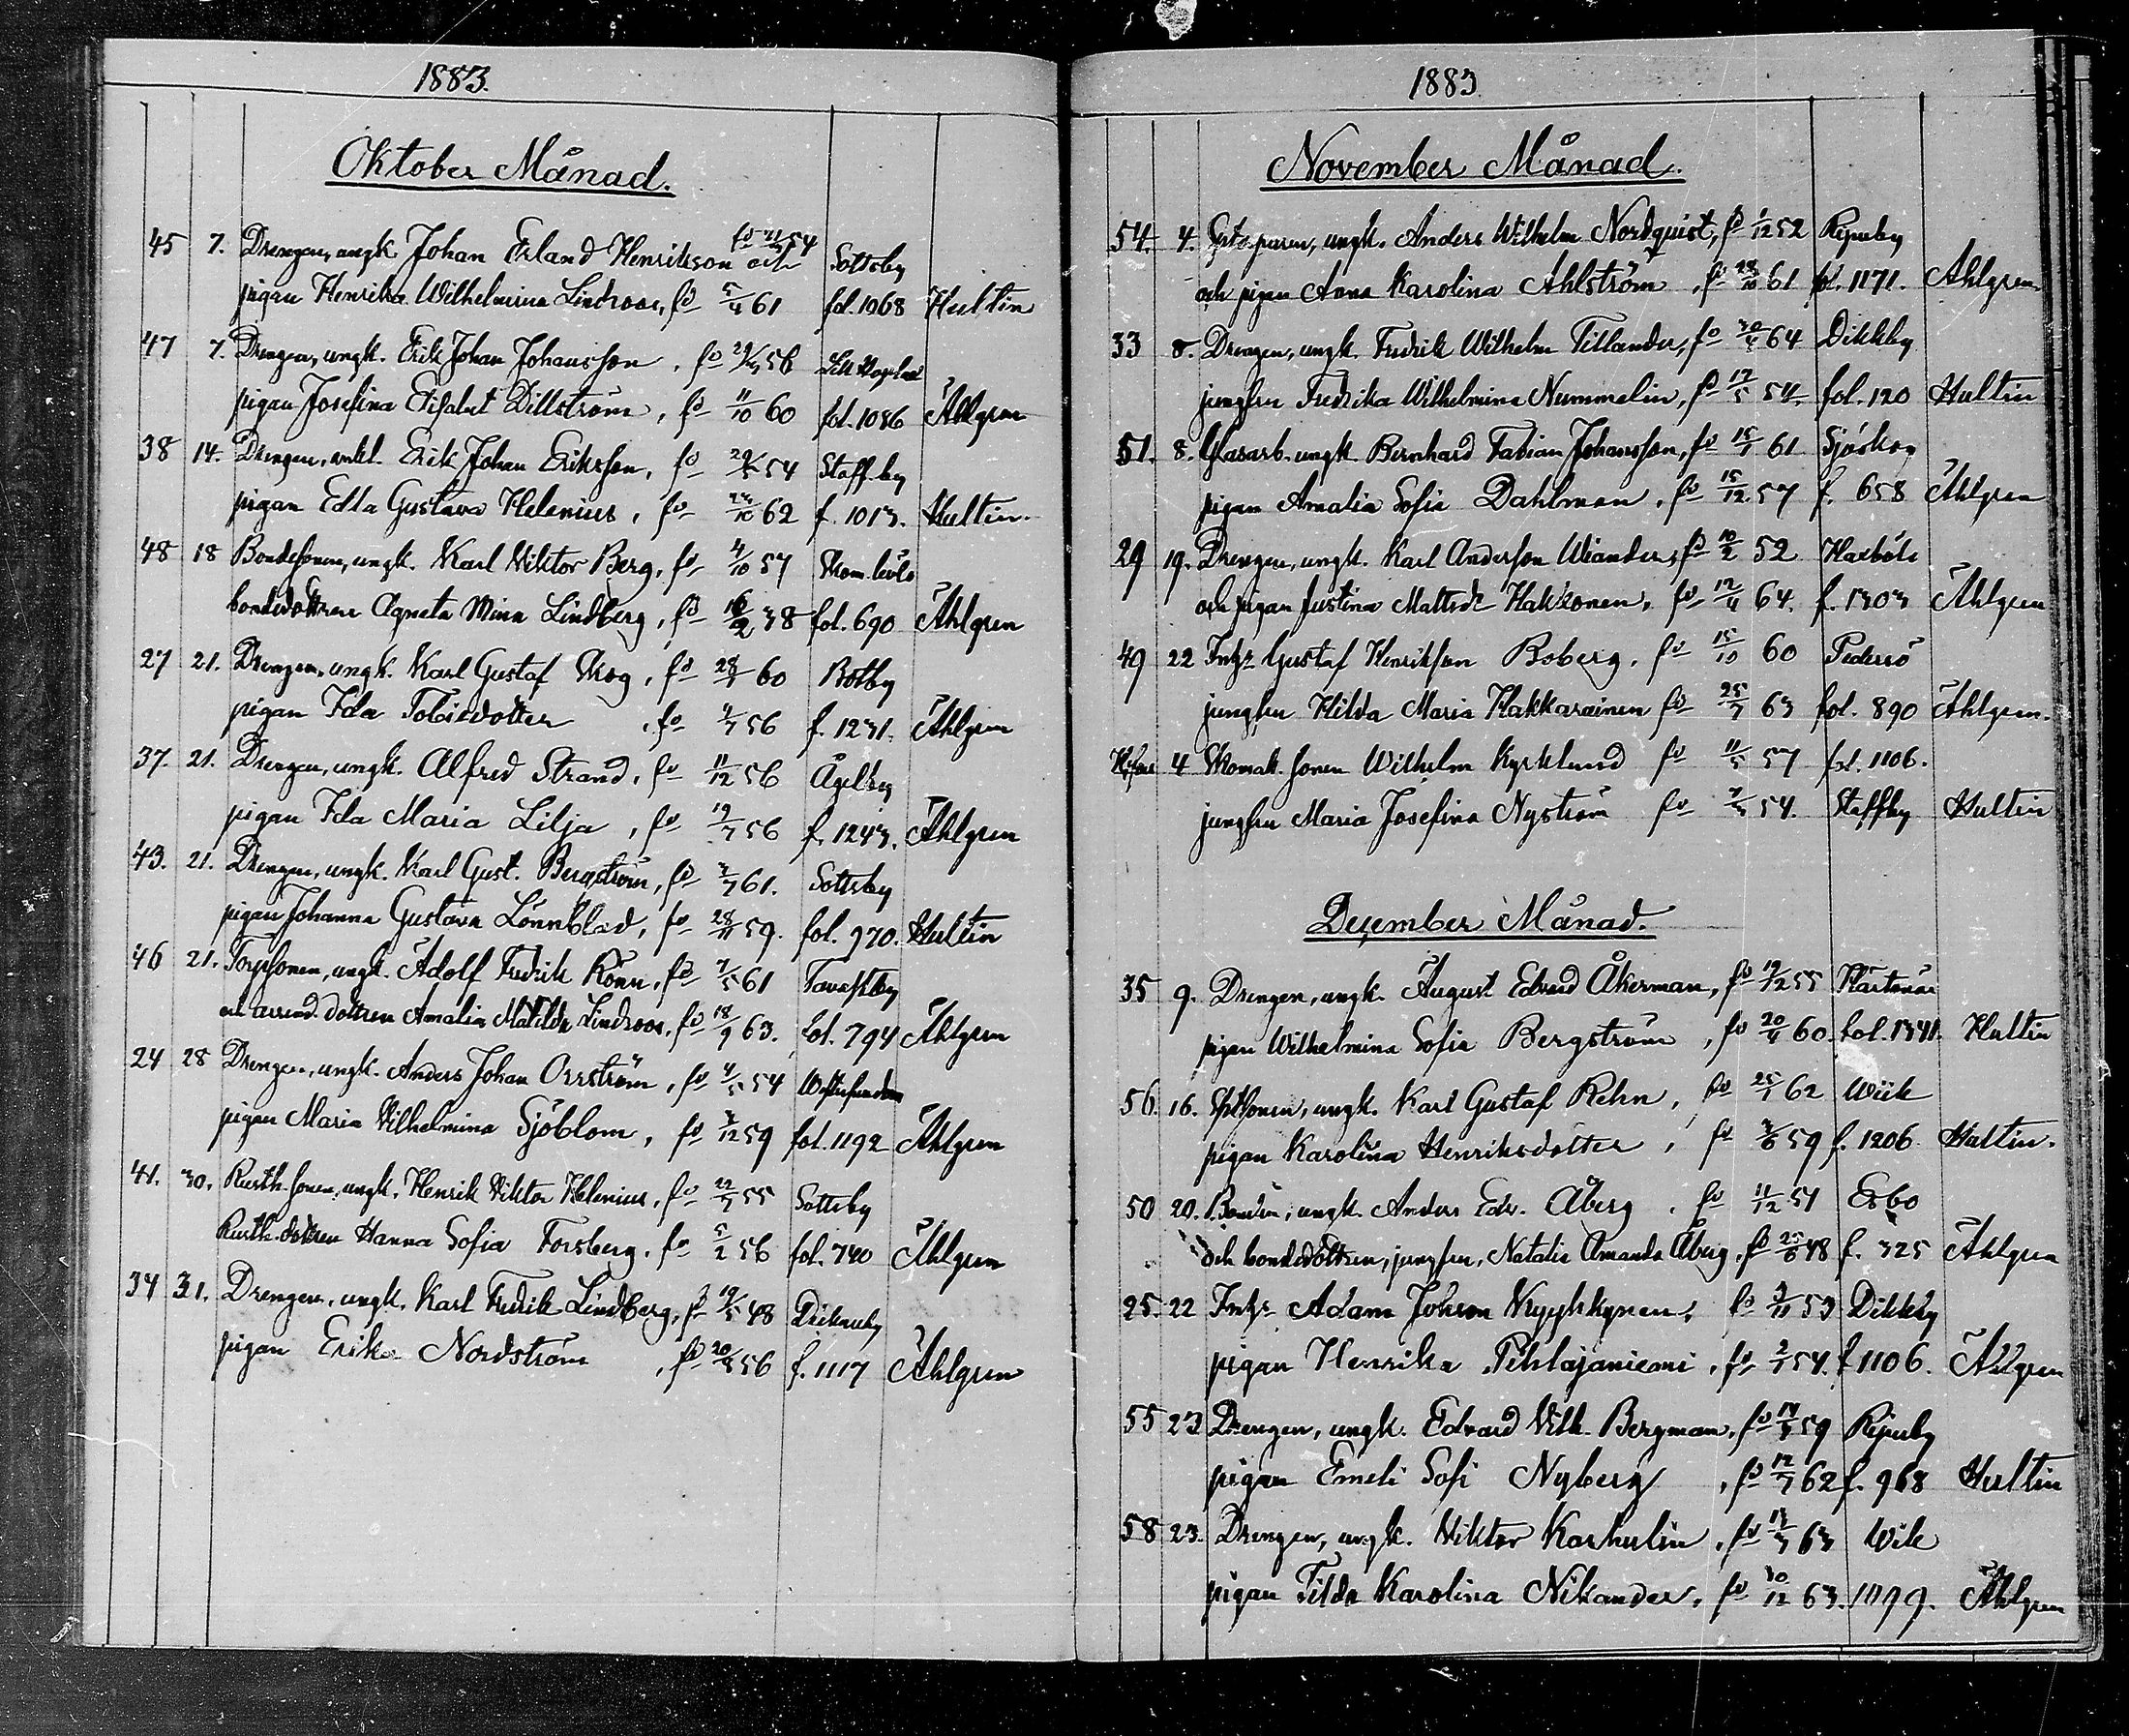 1883.
Oktober Månad.
45 7. Drengen, ungk Johan Erland Henriksson och
pigan Henrika Wilhelmina Lindroos, fd 5/4 61 fol. 1068 Hultin
47 7. Drengen, ungk. Erik Johan Johansson, fd 56
pigan Josefina Elisabet Dillström, fd 11/10 60 fol. 1086 Ahlgren
38 14. Drengen, enkl. Erik Johan Eriksson, fd 54 Staff.by
pigan Edla Gustava Helenius, fd 62 f. 1013. Hultin.
48 18 Bondesonen, ungk. Karl Viktor Berg, fd 4/10 57
bondedottren Agneta Mina Lindberg, fd 38 fol. 690 Ahlgren
27 21. Drengen, ungk. Karl Gustaf Skog, fd 60 Botby
pigan Ida Tobiedotter, fd 56 f. 1231. Ahlgren
37. 21. Drengen, ungk. Alfred Strand, fd 11/12 56
pigan Ida Maria Lilja, fd 19/7 56 f. 1243. Ahlgren
43. 21. Drengen, ungk. Karl Gust. Bergström, fd 61. Sottsby
pigan Johanna Gustava Lönnblad, fd 28/11 59. fol. 970. Hultin
46 21. Torpsonen, ungk. Adolf Fredrik Rönn, fd 7/5 61 Tavastby
och arrend. dottren Amalia Matilda Lindroos, fd 18/9 63. fol. 794 Ahlgren
24 28 Drengen, ungk. Anders Johan Orrström, fd 54
pigan Maria Vilhelmina Sjöblom, fd 59 fol. 1192 Ahlgren
41. 30. Rusth. sonen, ungk. Henrik Viktor Helenius, fd 55 Sottsby
Rusth. dottren Hanna Sofia Forsberg, fd 5/2 56 fol. 740 Ahlgren
34 31. Drengen, ungk. Karl Fredrik Lindberg, fd 48
pigan Erika Nordström, fd 56 f. 1117 Ahlgren
1883.
November Månad.
54. 4. ungk. Anders Wilhelm Nordquist, fd 1/12 52
och pigan Anna Karolina Ahlström, fd 28/10 61 fol. 1171. Ahlgren
33 8. Drengen, ungk. Fredrik Wilhelm Tillander, fd 64 Dikkby
jungfru Fredrika Wilhelmina Nummelin, fd 17/5 54. fol. 120 Hultin
51. 8. Glasarb. ungk. Bernhard Fabian Johansson, fd 61 Sjöskog
pigan Amalia Sofia Dahlman, fd 15/12 57 f. 658 Ahlgren
29 19. Drengen, ungk. Karl Andersson Wiander, fd 10/2 52 Haxböle
och pigan Justina Mattsdr Hakkonen, fd 12/4 64. f. 1303 Ahlgren
49 22 Inhr Gustaf Henriksson Boberg, fd 15/10 60 Pedersö
jungfru Hilda Maria Hakkarainen fd 25/7 63 fol. 890 Ahlgren.
4 Skomak. sonen Wilhelm Kyrklund fd 11/5 57 fol. 1106.
jungfru Maria Josefina Nyström fd 54. Staffby Hultin
December Månad.
35 9. Drengen, ungk. August Edvard Åkerman, fd 55
pigan Wilhelmina Sofia Bergström, fd 20/4 60. fol. 1341. Hultin
56. 16. ungk. Karl Gustaf Rehn, fd 62 Wiik
pigan Karolina Henriksdotter, fd 59 f. 1206 Hultin.
50 20. Bonden, ungk. Anders Edv. Åberg, fd 11/12 51 Esbo
och bondedottren, jungfru, Natalia Amanda Åberg, fd 48 f. 325 Ahlgren
25. 22 Inhr Adam Johsson fd 3/11 53 Dikkby
pigan Henrika Pihlajaniemi, fd 54. f 1106. Ahlgren
55 23 Drengen, ungk. Edvard Vilh. Bergman, fd 59
pigan Emeli Sofi Nyberg, fd 12/7 62 f. 968 Hultin
58 23. Drengen, ungk. Viktor Karhulin, fd 63 Wik
pigan Tilda Karolina Nikander, fd 30/12 63. 1099. Ahlgren